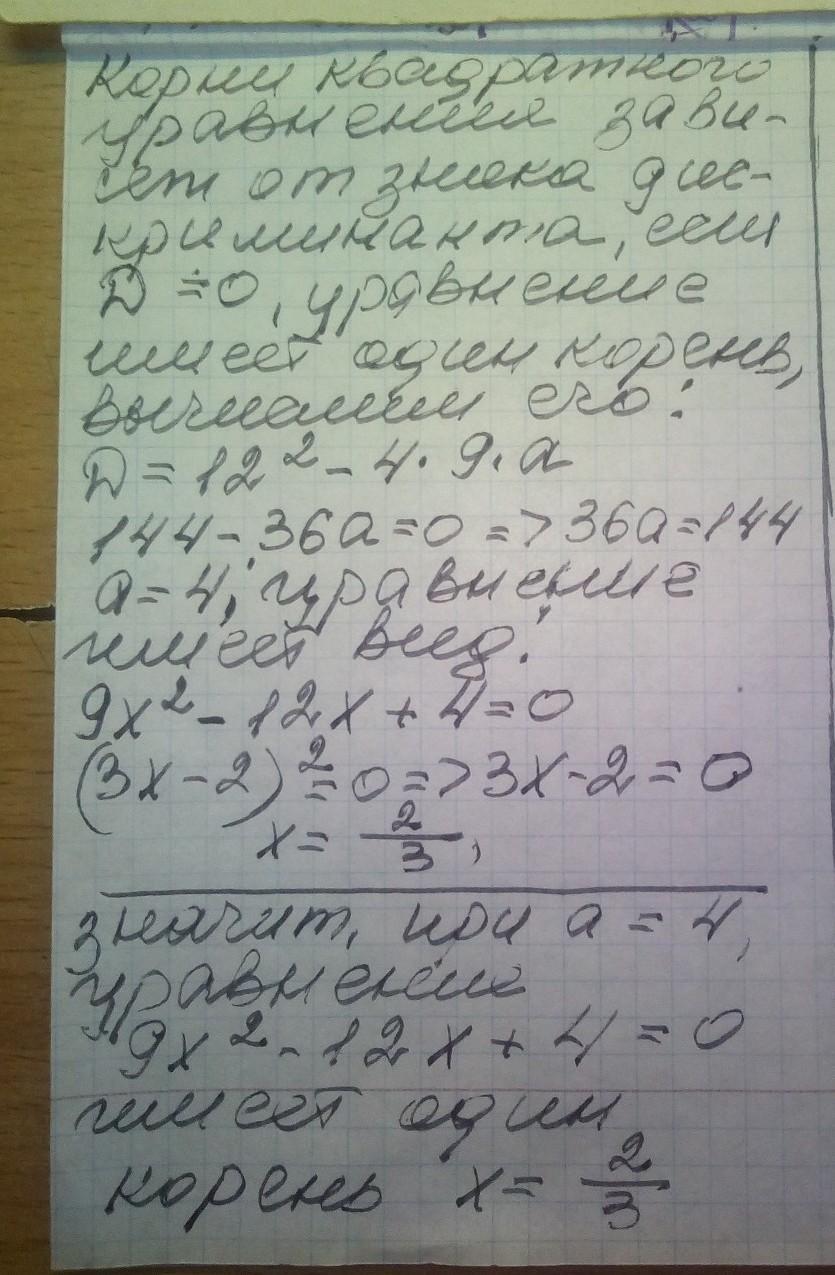 Корни квадратного
уравнения зави-
сет от знака дис-
криминанта, если
D = 0, уравнение
имеет один корень,
вычислим его:
D = 12² - 4 · 9 · a
144 - 36a = 0 => 36a = 144
a = 4, уравнение
имеет вид:
9x² - 12x + 4 = 0
(3x - 2)² = 0 => 3x - 2 = 0
x = 2/3,
значит, при a = 4,
уравнение
9x² - 12x + 4 = 0
имеет один
корень x = 2/3